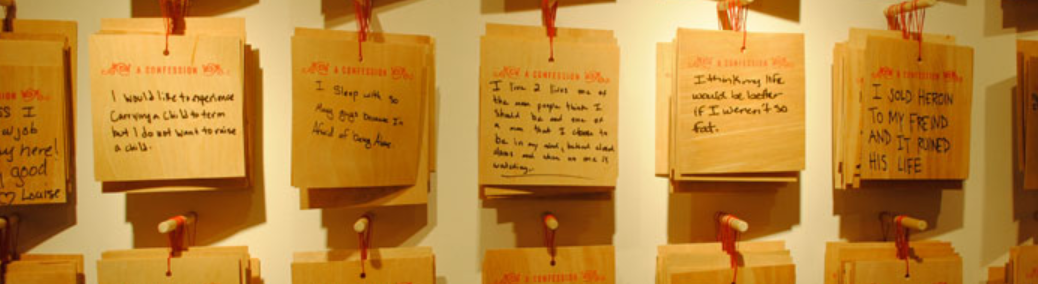 IS I
w job
y here!
good
♡ Louise
A CONFESSION
I would like to experience
Carrying a child to term
but I do not want to raise
a child.
A CONFESSION
I Sleep with so
Many guys because I'm
Afraid of being Alone.
A CONFESSION
I live 2 lives one of
the man people think I
should be and one of
a man that I choose to
be in my mind, behind closed
doors and when no one is
watching.
A CONFESSION
I think my life
would be better
if I weren't so
fat.
A CONFESSION
I SOLD HEROIN
TO MY FREIND
AND IT RUINED
HIS LIFE
A CONFESSION